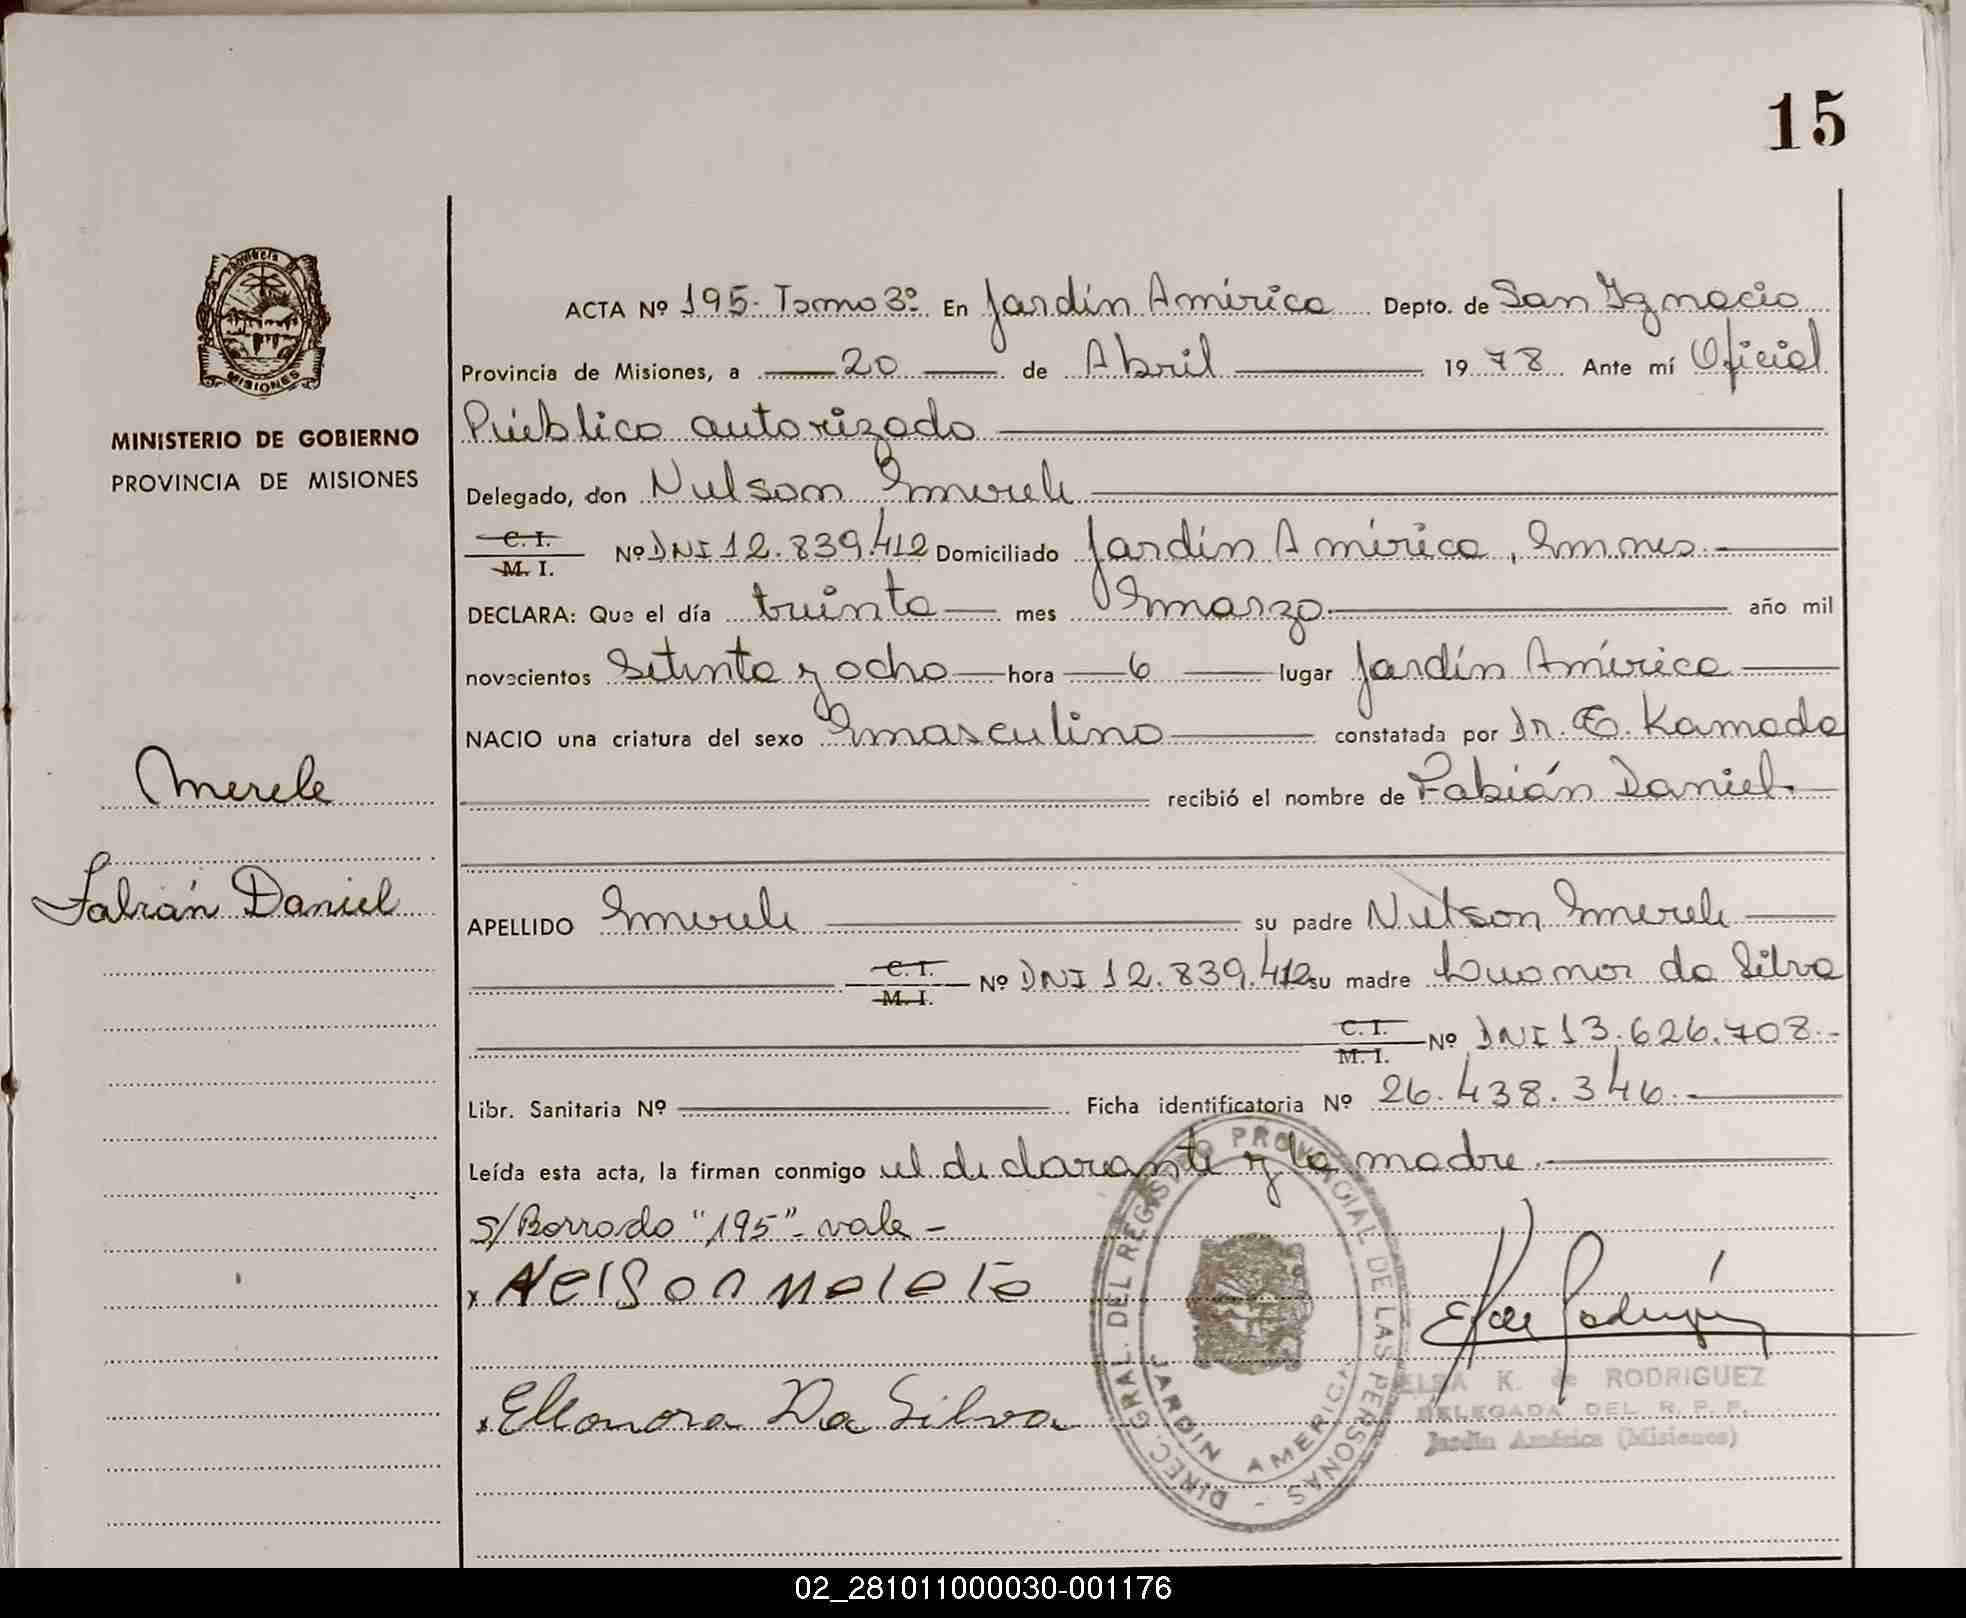 15
ACTA Nº 195- Tomo 3º En Jardín América Depto. de San Ignacio
Provincia de Misiones, a 20 de Abril 1978 Ante mí Oficial
Público autorizado
MINISTERIO DE GOBIERNO
PROVINCIA DE MISIONES
Delegado, don Nelson Merele
C. I.
M. I. Nº DNI 12.839.412 Domiciliado Jardín América, Mnes.-
DECLARA: Que el día treinta mes Marzo año mil
novecientos Setenta y ocho hora 6 lugar Jardín América
NACIO una criatura del sexo Masculino constatada por Dr. E. Kamada
Merele
recibió el nombre de Fabián Daniel.
Fabián Daniel
APELLIDO Merele su padre Nelson Merele
C. I.
M. I. Nº DNI 12.839.412 su madre da Silva
C. I.
M. I. Nº DNI 13.626.708.-
Libr. Sanitaria Nº Ficha identificatoria Nº 26.438.346.-
Leída esta acta, la firman conmigo el declarante y la madre.-
s/Borrado "195"- vale -
x Nelson
x Elleonora Da Silva
DIREC. GRAL. DEL REGISTRO PROVINCIAL DE LAS PERSONAS -
JARDIN AMERICA
ELSA K. de RODRIGUEZ
DELEGADA DEL R. P. P.
Jardín América (Misiones)
02_281011000030-001176